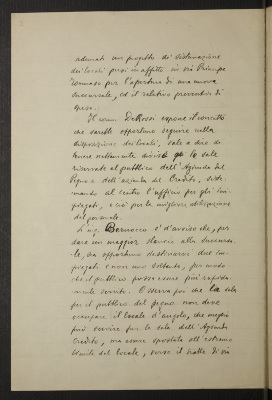 adunati un progetto di sistemazione
dei locali presi in affitto in via Principe
Tommaso per l'apertura di una nuova
succursale, ed il relativo preventivo di
spesa.
Il comm. De Rossi espone il concetto
che sarebbe opportuno seguire nella
disposizione dei locali, vale a dire di
tenere nettamente divise le sale
riservate al pubblico dell'Azienda del
Pegno dell'azienda del Credito, siste-
mando al centro l'ufficio per gli im-
piegati, e ciò per la migliore utilizzazione
del personale.
L'ing. Bernocco è d'avviso che, per
dare un maggior slancio alla succursa-
le, sia opportuno destinarvi due im-
piegati e non uno soltanto, per modo
che il pubblico possa essere più rapida-
mente servito. Osserva poi che la sala
per il pubblico del pegno non deve
occupare il locale d'angolo, che meglio
può servire per la sala dell'Azienda
Credito, ma essere spostata all'estremo
del locale, verso il tratto di via